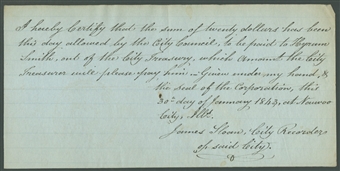 I hereby Certify that the sum of twenty dollars has been
this day allowed by the City Council, to be paid to Hyrum
Smith, out of the City Treasury, which amount the City
Treasurer will please pay him. Given under my hand, &
the seal of the Corporation, this
30th day of January 1843, at Nauvoo
City, Ills.
James Sloan, City Recorder
of said City.